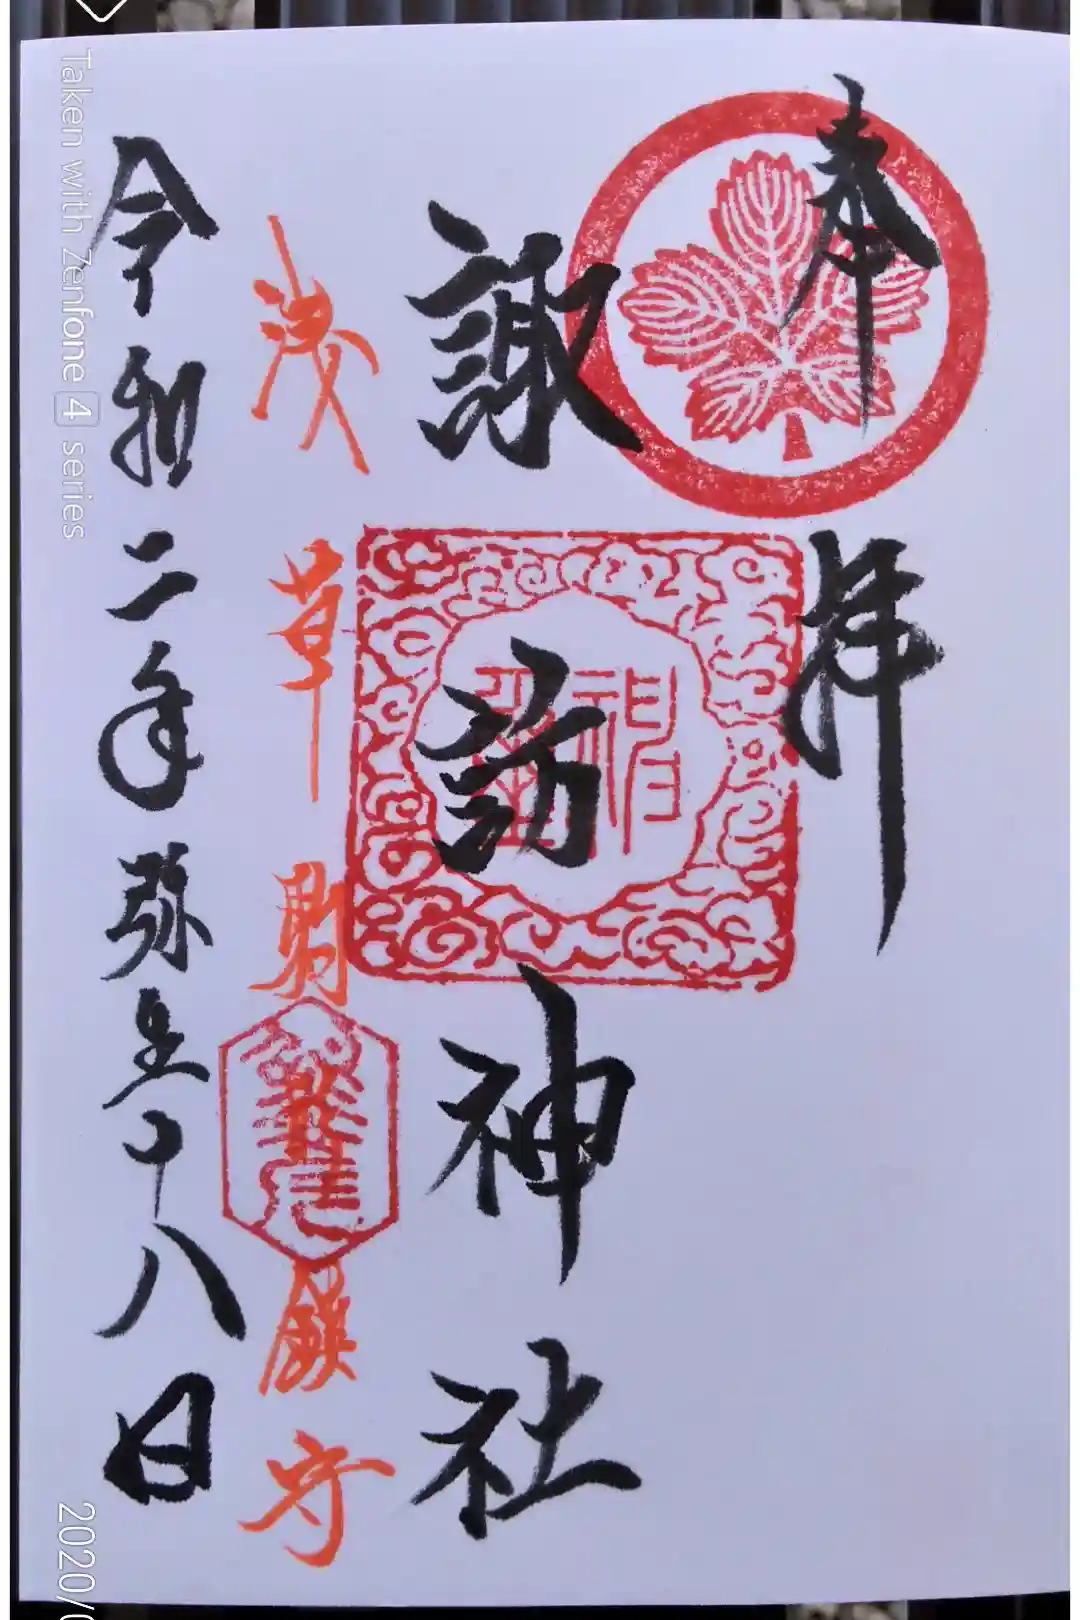 奉拝
諏訪神社
浅草駒形鎮守
令和二年弥生十八日
Taken with Zenfone 4 series
2020/